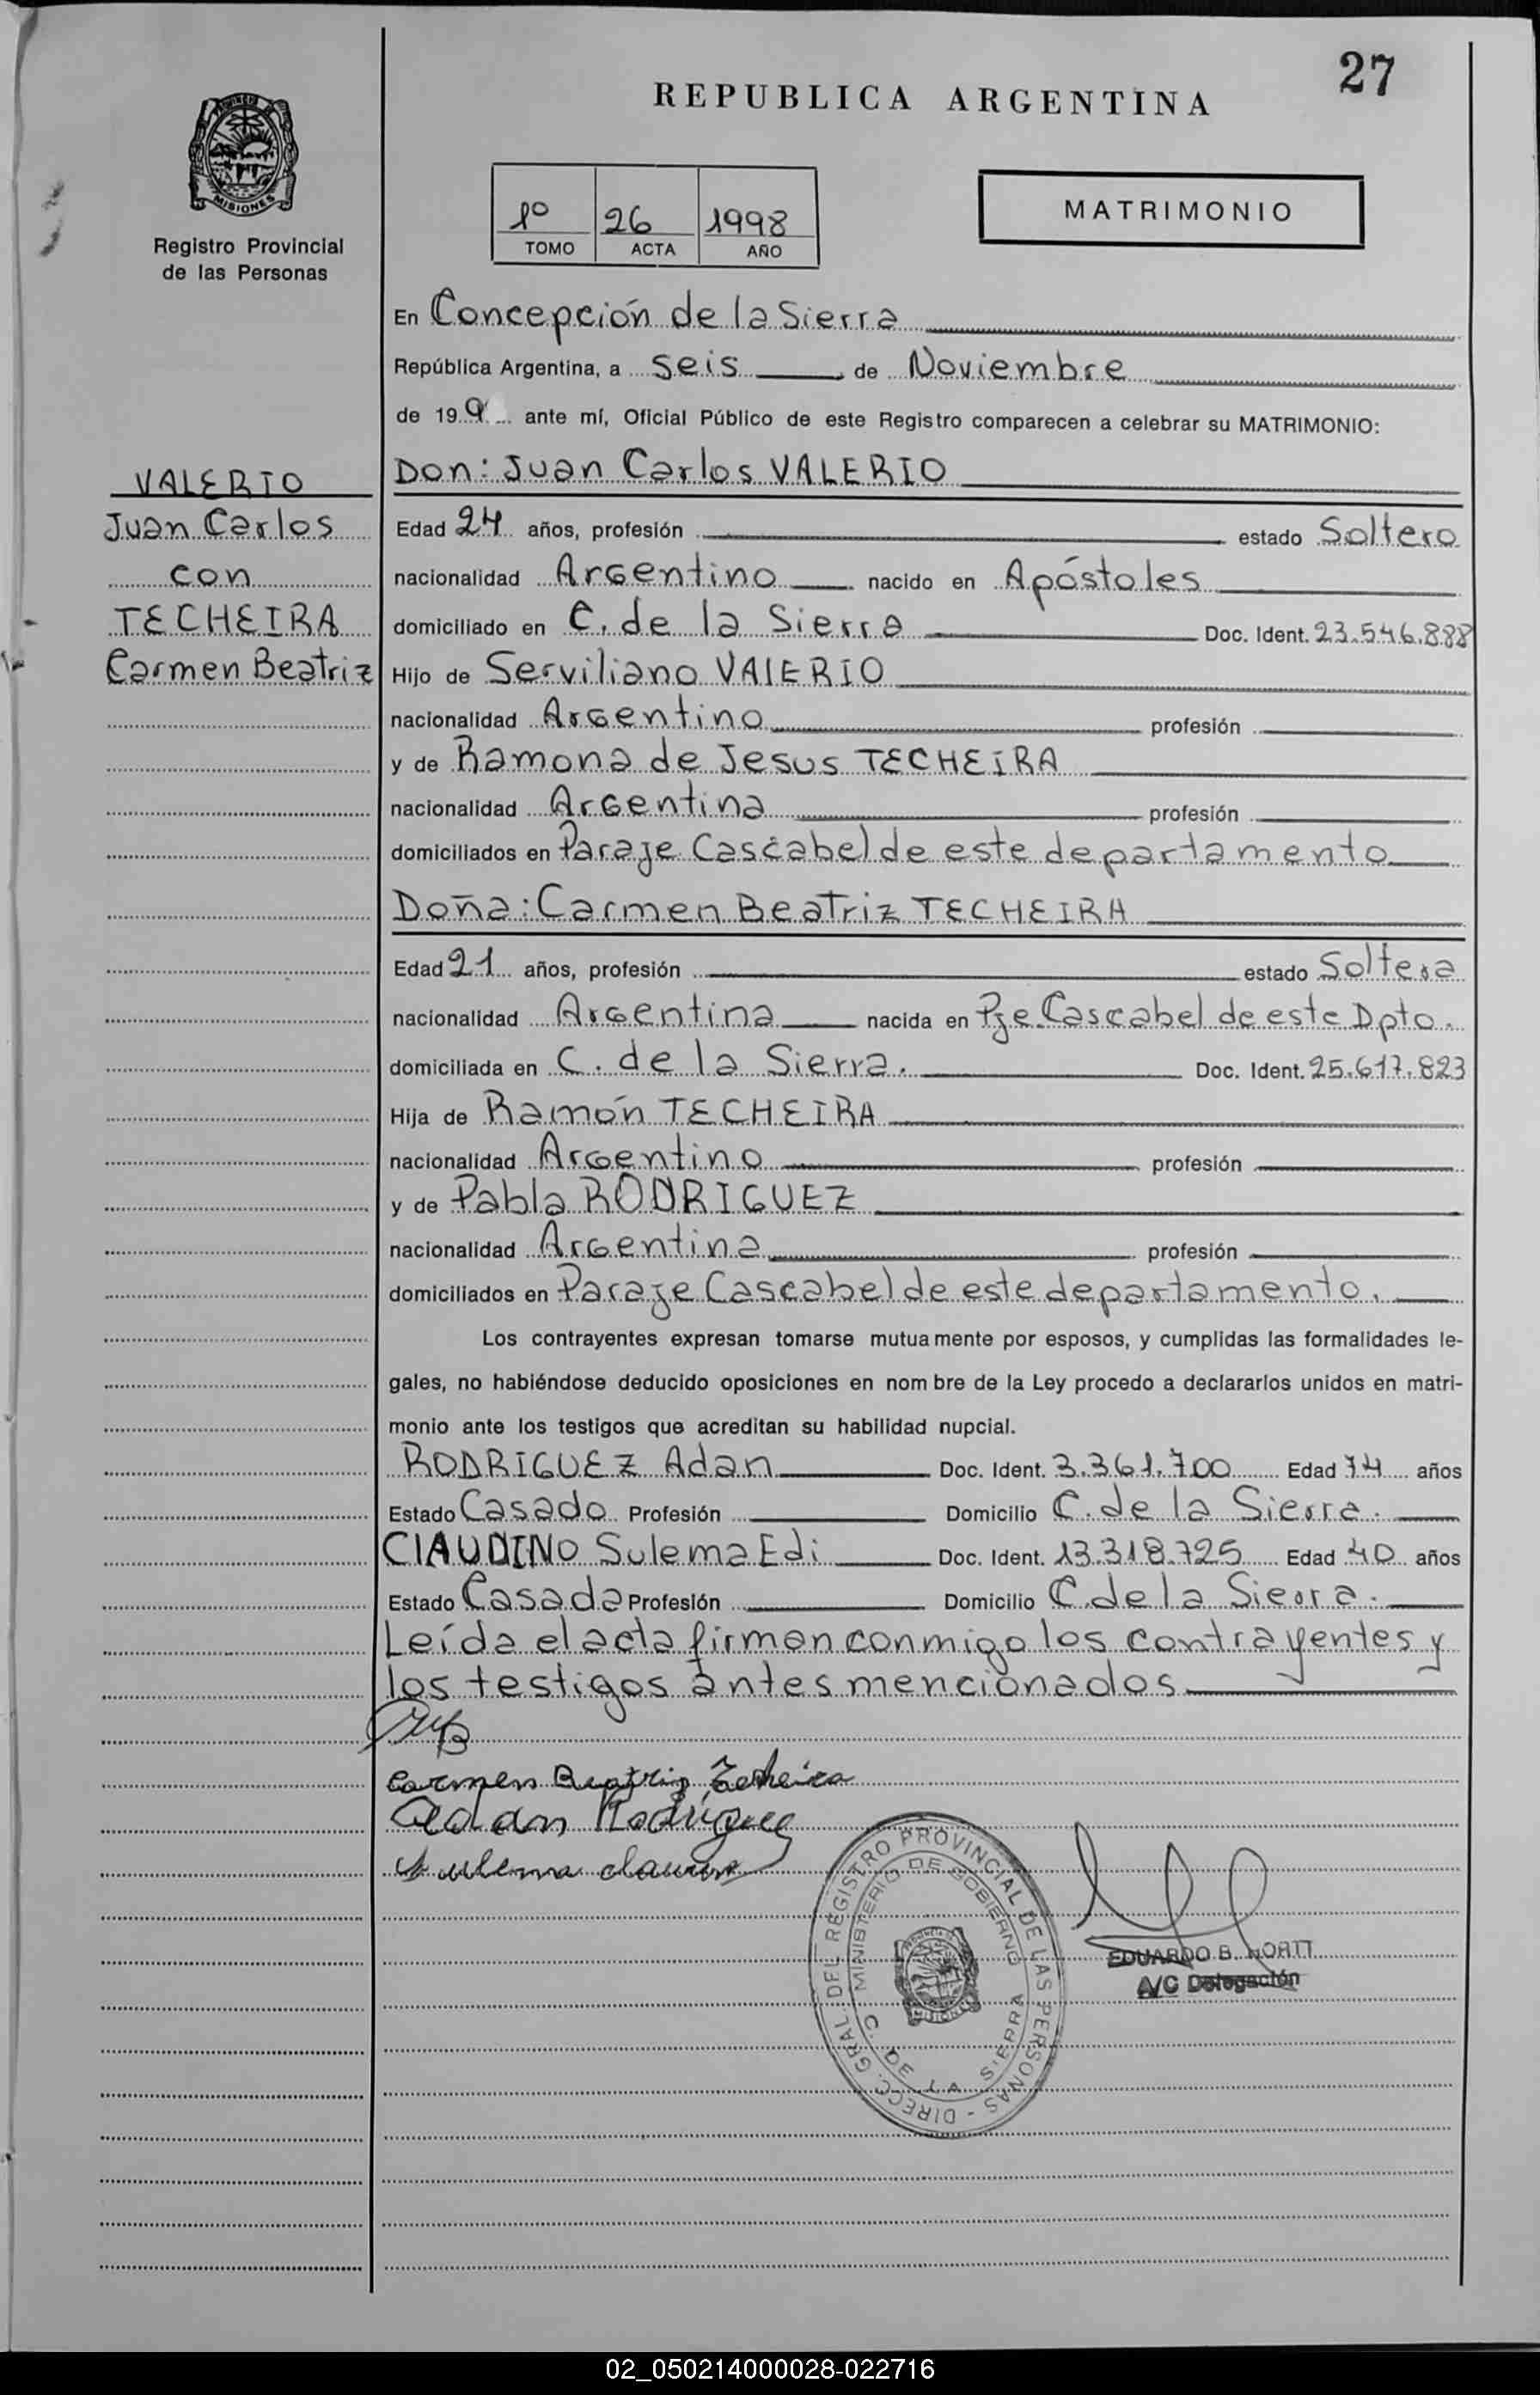 27
REPUBLICA ARGENTINA
PROVINCIA DE
MISIONES
Registro Provincial
de las Personas
1º 26 1998
TOMO ACTA AÑO
MATRIMONIO
En Concepción de la Sierra
República Argentina, a seis de Noviembre
de 19 9 ante mí, Oficial Público de este Registro comparecen a celebrar su MATRIMONIO:
VALERIO
Juan Carlos
con
TECHEIRA
Carmen Beatriz
Don: Juan Carlos VALERIO
Edad 24 años, profesión estado Soltero
nacionalidad Argentino nacido en Apóstoles
domiciliado en C. de la Sierra Doc. Ident. 23.546.888
Hijo de Serviliano VAlERIO
nacionalidad Argentino profesión
y de Ramona de Jesus TECHEiRA
nacionalidad Argentina profesión
domiciliados en Paraje Cascabel de este departamento
Doña: Carmen Beatriz TECHEIRA
Edad 21 años, profesión estado Soltera
nacionalidad Argentina nacida en Pje. Cascabel de este Dpto.
domiciliada en C. de la Sierra. Doc. Ident. 25.617.823
Hija de Ramón TECHEIRA
nacionalidad Argentino profesión
y de Pabla RODRIGUEZ
nacionalidad Argentina profesión
domiciliados en Paraje Cascabel de este departamento.
Los contrayentes expresan tomarse mutuamente por esposos, y cumplidas las formalidades le-
gales, no habiéndose deducido oposiciones en nom bre de la Ley procedo a declararlos unidos en matri-
monio ante los testigos que acreditan su habilidad nupcial.
RODRIGUEZ Adan Doc. Ident. 3.361.700 Edad 74 años
Estado Casado Profesión Domicilio C. de la Sierra.
ClAUDINO Sulema Edi Doc. Ident. 13.318.725 Edad 40 años
Estado Casada Profesión Domicilio C. de la Sierra.
Leída el acta firman conmigo los contrayentes y
los testigos antes mencionados
Carmen Beatriz Techeira
Adan Rodriguez
Sulema
DIRECC. GRAL. DEL REGISTRO PROVINCIAL DE LAS PERSONAS -
MINISTERIO DE GOBIERNO
C. DE LA SIERRA
EDUARDO B.
A/C Delegación
02_050214000028-022716